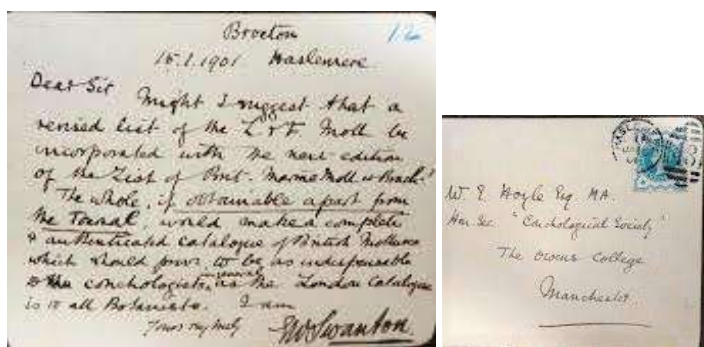 Brocton
12
15.1.1901 Haslemere
Dear Sir
Might I suggest that a
revised list of the L & F. Moll be
incorporated with the next edition
of the List of Brit. Marine Moll & Brach.
The whole, if obtainable apart from
the Journal, would make a complete
& authenticated catalogue of British Mollusca
which should prove to be as indispensable
to the conchologists, as the London Catalogue
is to all Botanists. I am
Yours very truly
EWSwanton.
W. E. Hoyle Esq. MA.
Hon. Sec. "Conchological Society"
The Owens College
Manchester